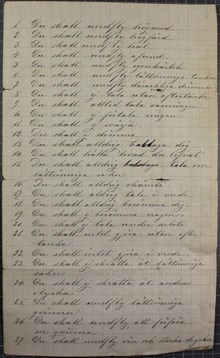 1. Du skall undfly högmod
2. Du skall undfly högfärd
3. Du skall undfly hat
4. Du skall undfly afund
5. Du skall undfly
6. Du skall undfly lättsinniga tankar
7. Du skall undfly
8. Du skall ej tala utan eftertanke
9. Du skall alltid tala sanningen
10. Du skall ej förtala någon
11. Du skall ej svärja
12. Du skall ej dömma
13. Du skall aldrig beklaga dig
14. Du skall hålla hvad du lofvat
15. Du skall aldrig tala om
lättsinniga
16. Du skall aldrig skämta
17. Du skall aldrig tala i vrede
18. Du skall aldrig berömma dig
19. Du skall ej berömma någon
20. Du skall ej tala under arbete
21. Du skall intet göra utan efter
tanke
22. Du skall intet göra i vrede
23. Du skall ej skratta åt lättsinniga
saker
24. Du skall ej skratta åt andras
olycka
25. Du skall undfly lättsinniga
qvinnor
26. Du skall undfly att förföra
en qvinna
27. Du skall undfly vin och starka drycker